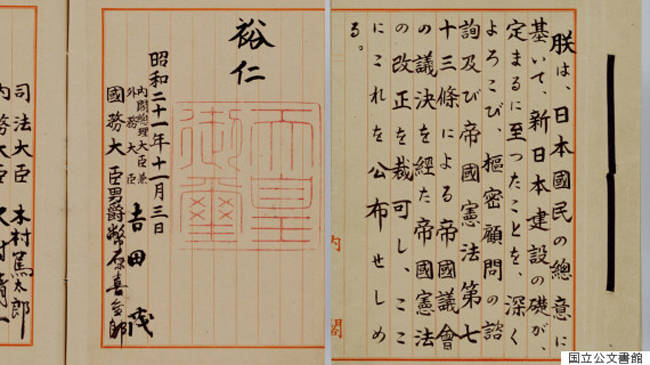 朕は、日本國民の總意に
基いて、新日本建設の礎が、
定まるに至つたことを、深く
よろこび、樞密顧問の諮
詢及び帝國憲法第七
十三條による帝國議會
の議決を経た帝國憲法
の改正を裁可し、ここ
にこれを公布せしめ
る。
内閣
裕仁
天皇
御璽
昭和二十一年十一月三日
内閣總理大臣兼
外務大臣
吉田茂
國務大臣男爵幣原喜重郎
司法大臣木村篤太郎
内務大臣
国立公文書館